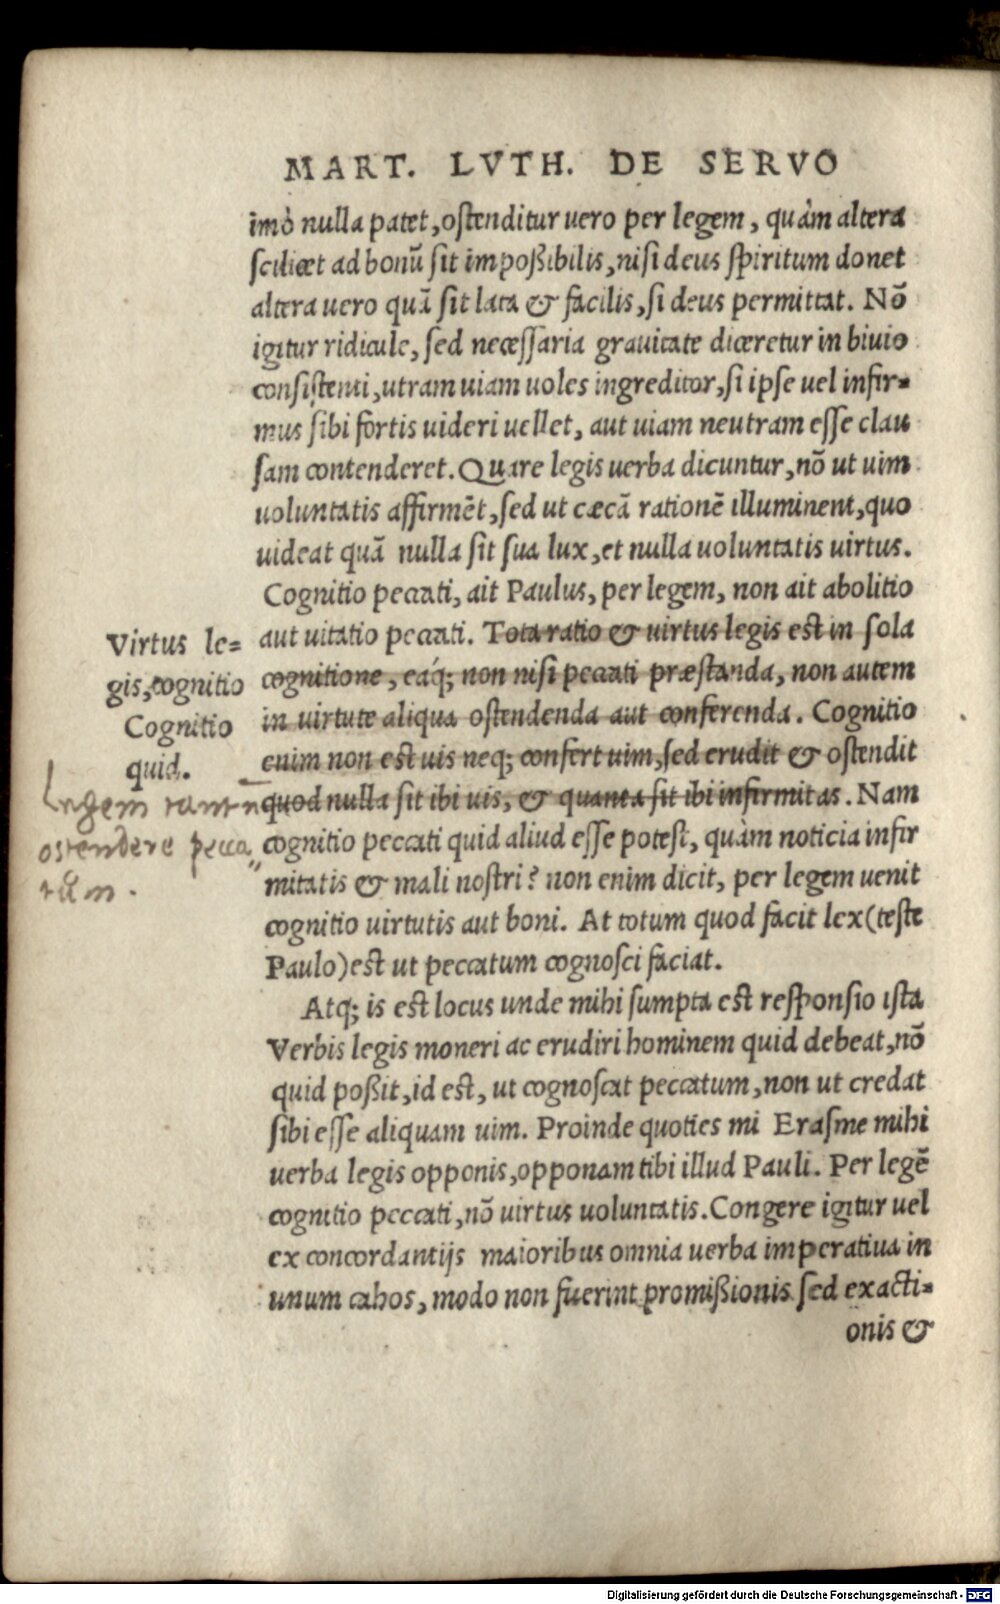 MART. LVTH. DE SERVO
imò nulla patet, ostenditur uero per legem, quàm altera
scilicet ad bonũ sit impoßibilis, nisi deus spiritum donet
altera uero quã sit lata & facilis, si deus permittat. Nõ
igitur ridicule, sed necessaria grauitate diceretur in biuio
consistenti, utram uiam uoles ingreditor, si ipse uel infir=
mus sibi fortis uideri uellet, aut uiam neutram esse clau
sam contenderet. Quare legis uerba dicuntur, nõ ut uim
uoluntatis affirmẽt, sed ut cæcã rationẽ illuminent, quo
uideat quã nulla sit sua lux, et nulla uoluntatis uirtus.
Cognitio peccati, ait Paulus, per legem, non ait abolitio
aut uitatio peccati. Tota ratio & uirtus legis est in sola
cognitione, eáq; non nisi peccati præstanda, non autem
in uirtute aliqua ostendenda aut conferenda. Cognitio
enim non est uis neq; confert uim, sed erudit & ostendit
quod nulla sit ibi uis, & quanta sit ibi infirmitas. Nam
cognitio peccati quid aliud esse potest, quàm noticia infir
mitatis & mali nostri? non enim dicit, per legem uenit
cognitio uirtutis aut boni. At totum quod facit lex (teste
Paulo) est ut peccatum cognosci faciat.
Virtus le=
gis, cognitio
Cognitio
quid.
Legem tantũ
ostendere pecca
tũm.
Atq; is est locus unde mihi sumpta est responsio ista
Verbis legis moneri ac erudiri hominem quid debeat, nõ
quid poßit, id est, ut cognoscat peccatum, non ut credat
sibi esse aliquam uim. Proinde quoties mi Erasme mihi
uerba legis opponis, opponam tibi illud Pauli. Per legẽ
cognitio peccati, nõ uirtus uoluntatis. Congere igitur uel
ex concordantijs maioribus omnia uerba imperatiua in
unum cahos, modo non fuerint promißionis sed exacti=
onis &
Digitalisierung gefördert durch die Deutsche Forschungsgemeinschaft - DFG